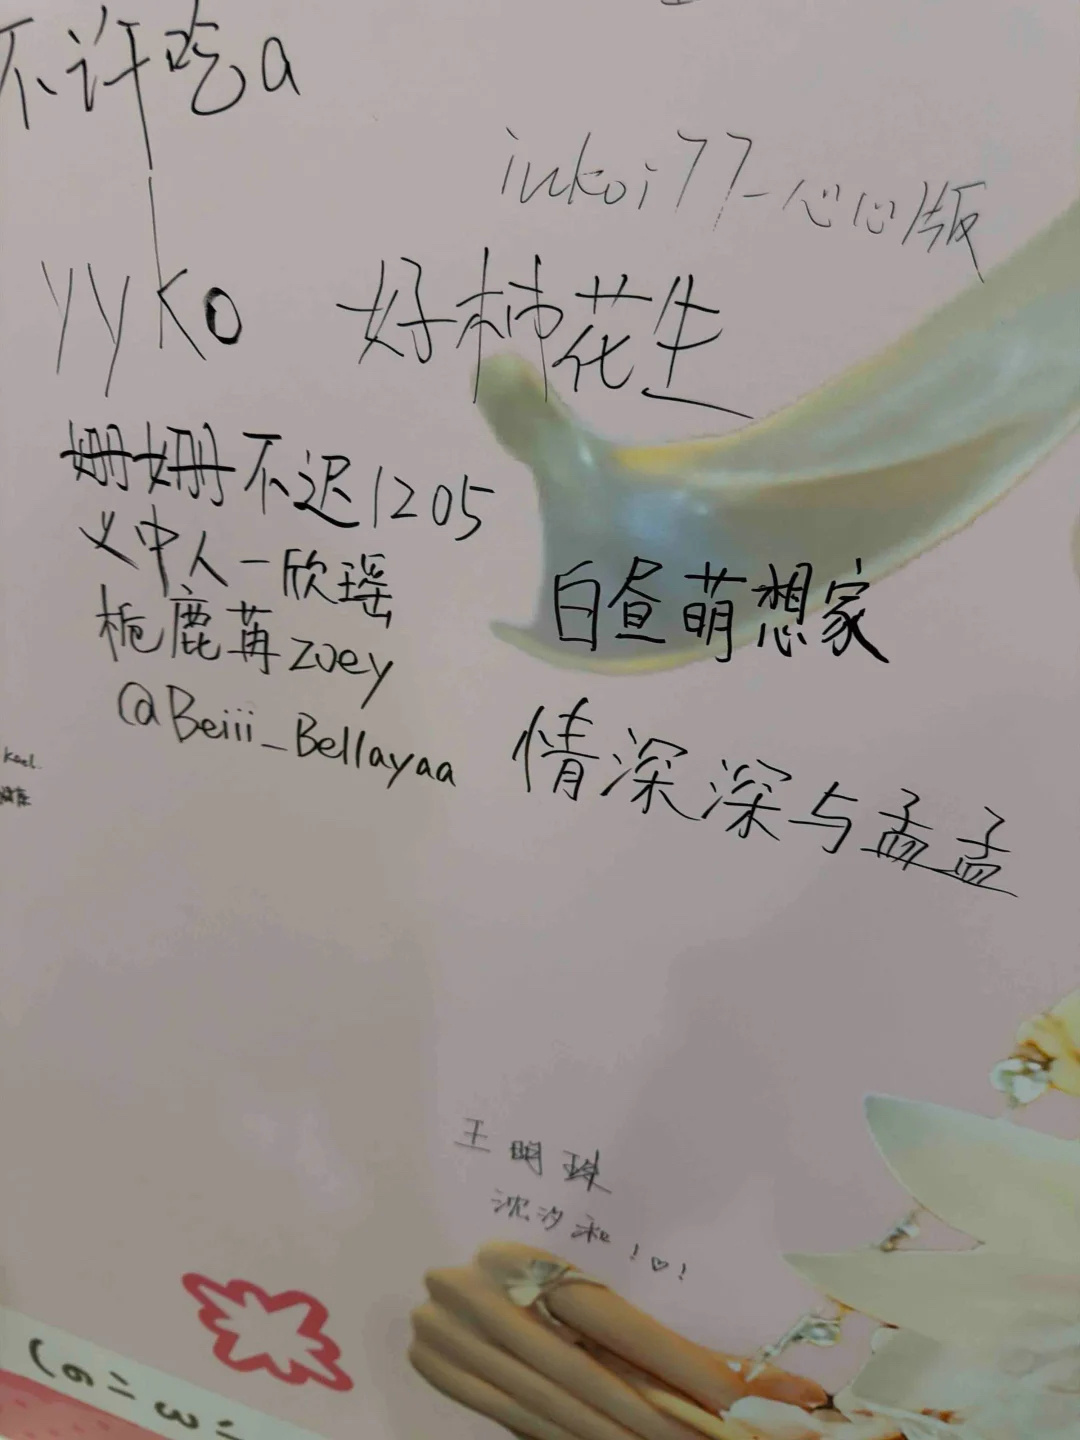 不许吃a
inkoi77-心心版
yyko
好柿花生
姗姗不迟1205
义中人-欣瑶
栀鹿苒zoey
@Beiii_Bellayaa
白昼萌想家
情深深与孟孟
Kael
王明珠
沈汐和!♡!